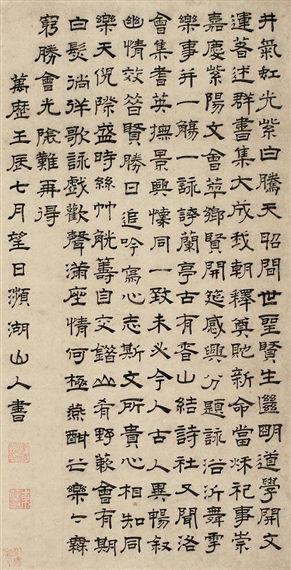 井氣虹光紫白騰天昭間世聖賢生明道學開文
運著述群書集大成我朝釋奠貤新命當秌祀事崇
嘉慶紫陽文會萃鄉賢開筵感興分題詠浴沂舞雩
樂事并一觴一詠誇蘭亭古有香山結詩社又聞洛
會集耆英撫景興懷同一致未必今人古人異暢敘
幽情效昔賢勝日追吟寫心志斯文所貴心相知同
樂天倪際盛時絲竹觥籌自交錯山肴野蔌會有期
白髮徜徉歌詠戲歡聲滿座情何極燕酣之樂〻無
窮勝會光陰難再得
萬歷壬辰七月望日瀕湖山人書